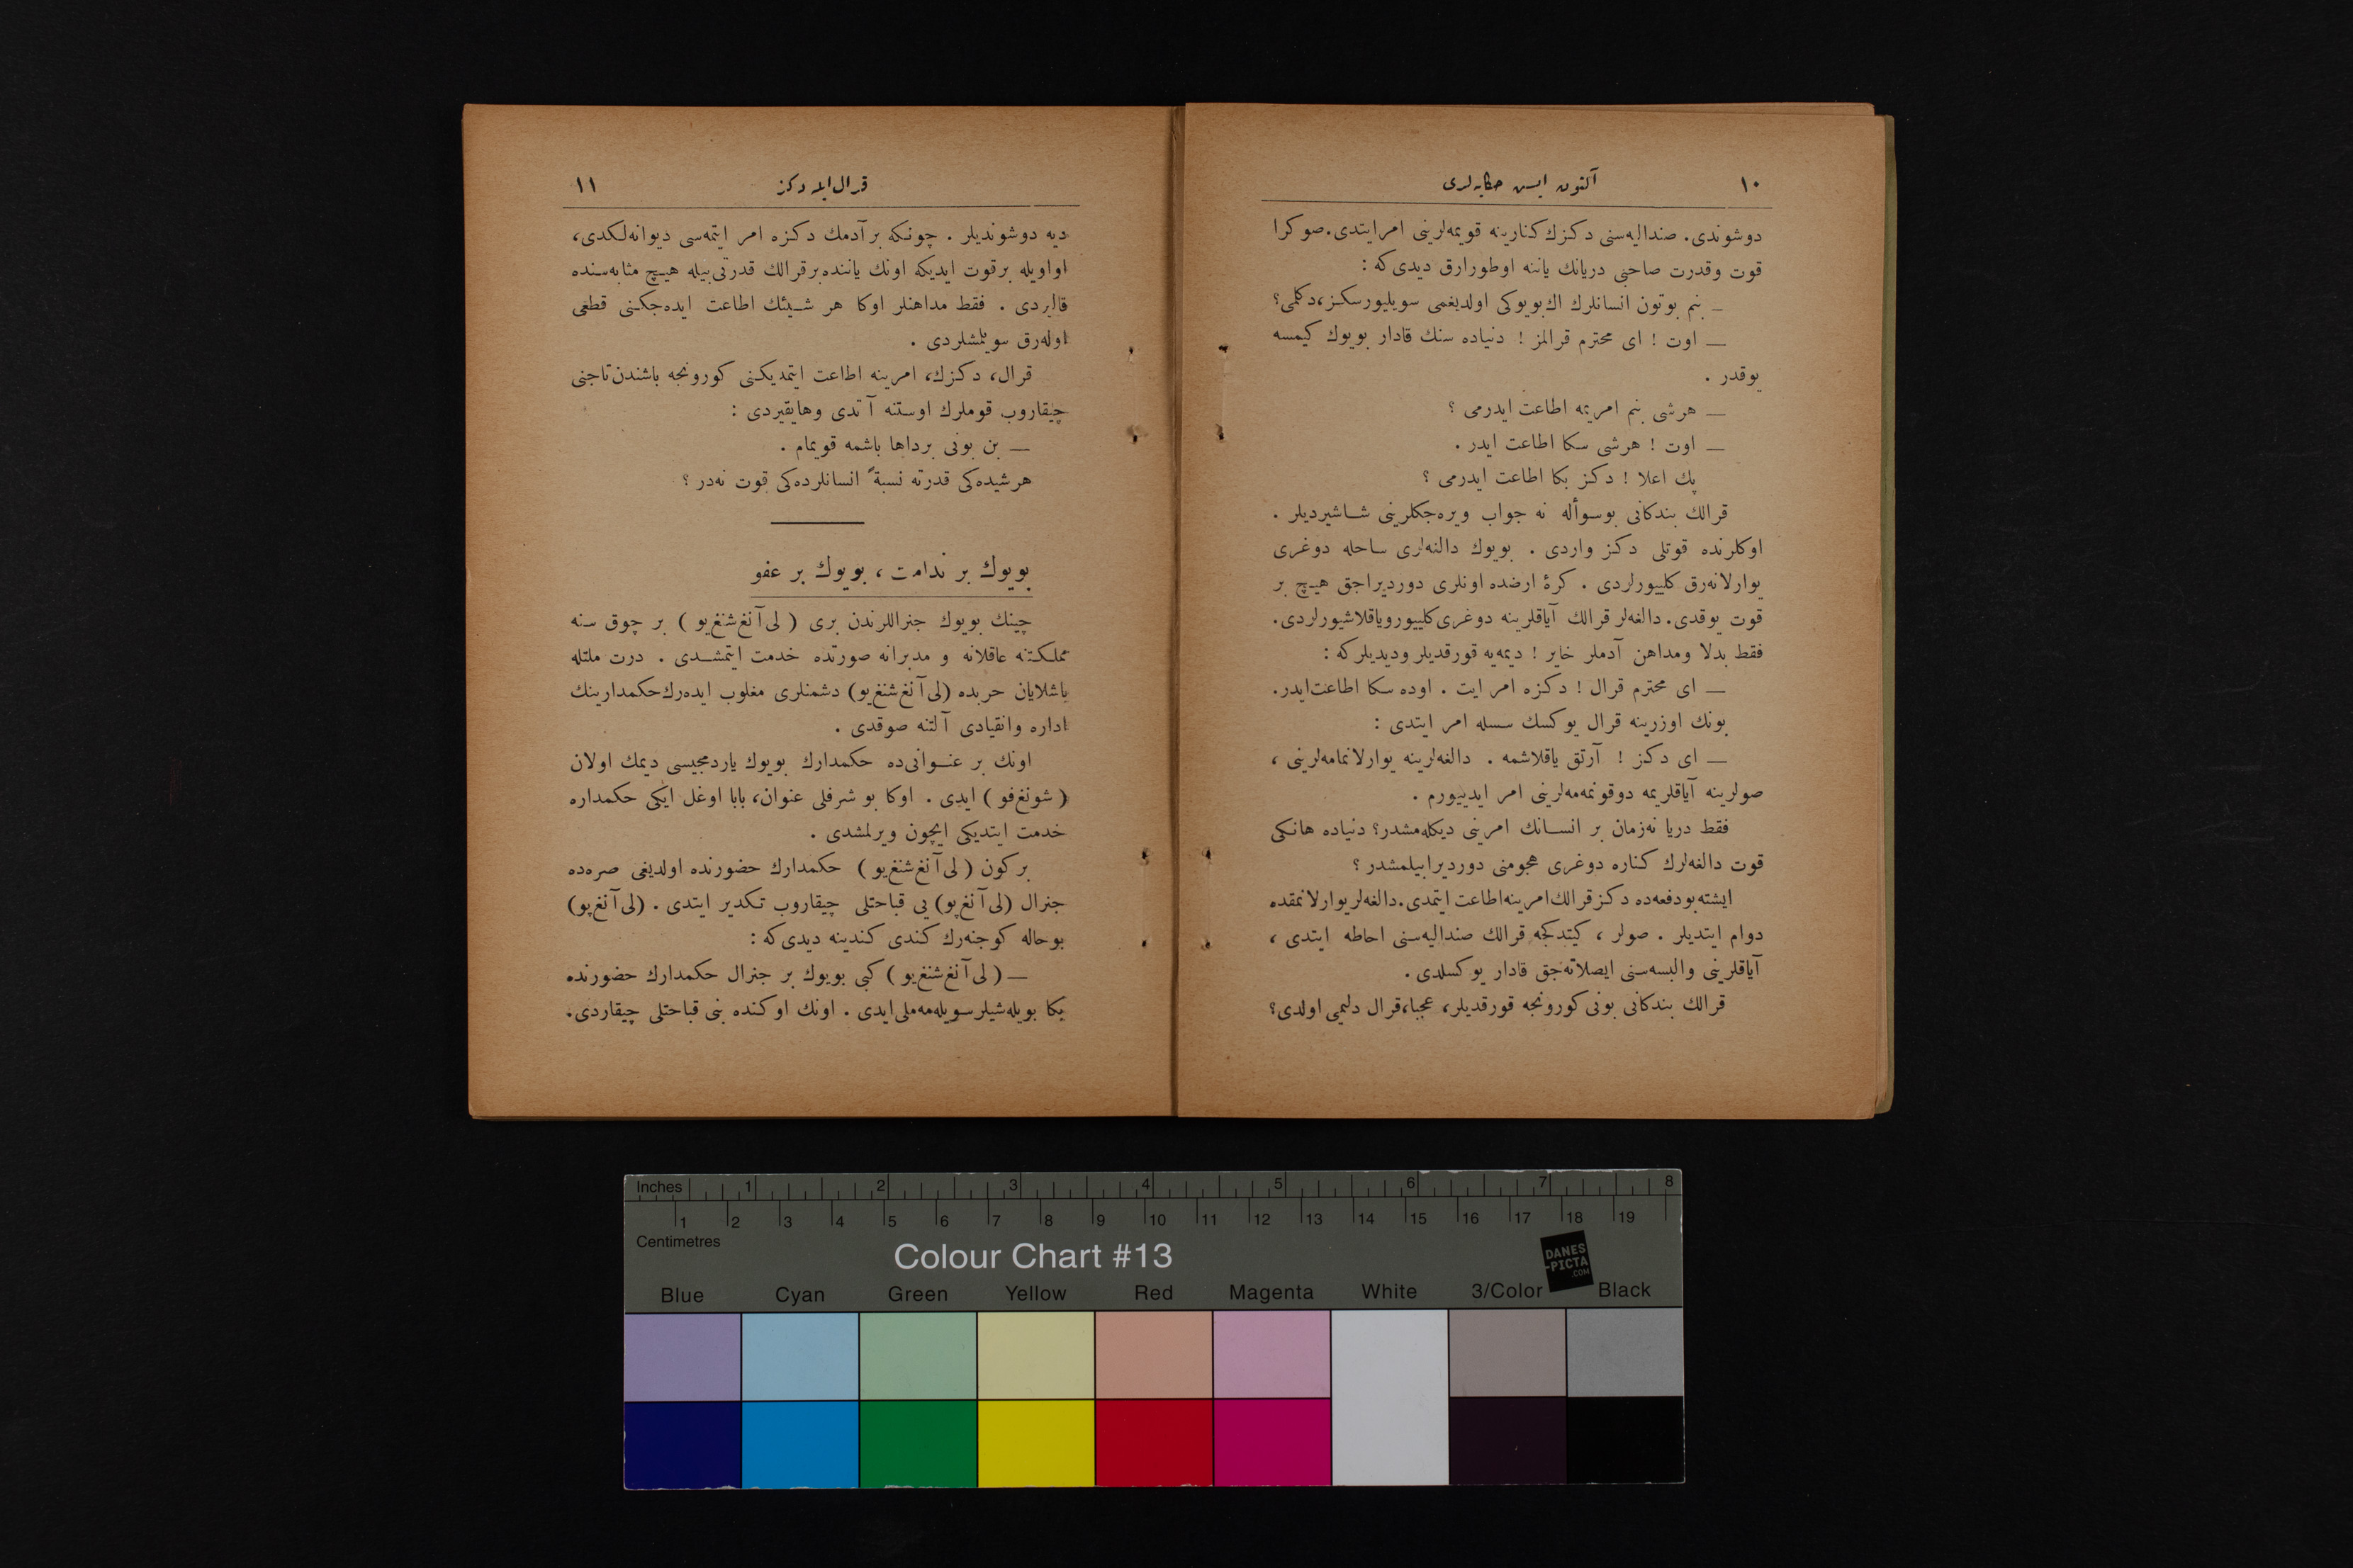 ١٠
آلتون ايسى حكايه‌لرى
دوشوندى. صنداليه‌سنى دكزك كنارينه قويمه‌لرينى امر ايتدى. صوكرا
قوت وقدرت صاحبى دريانك ياننه اوطورارق ديدى كه :
ـ بنم بوتون انسانلرك اك بويوكى اولديغمى سويليورسكز، دكلمى؟
— اوت ! اى محترم قرالمز ! دنياده سنك قادار بويوك كيمسه
يوقدر .
— هرشى بنم امريمه اطاعت ايدرمى ؟
— اوت ! هرشى سكا اطاعت ايدر .
پك اعلا ! دكز بكا اطاعت ايدرمى ؟
قرالك بندكانى بوسوأله نه جواب ويره‌جكلرينى شاشيرديلر .
اوكلرنده قوتلى دكز واردى . بويوك دالغه‌لرى ساحله دوغرى
يوارلانه‌رق كلييورلردى . كرۀ ارضده اونلرى دورديراجق هيچ بر
قوت يوقدى. دالغه‌لر قرالك آياقلرينه دوغرى كلييور وياقلاشيورلردى.
فقط بدلا ومداهن آدملر خاير ! ديمه‌يه قورقديلر وديديلر كه :
— اى محترم قرال ! دكزه امر ايت . اوده سكا اطاعت ايدر.
بونك اوزرينه قرال يوكسك سسله امر ايتدى :
— اى دكز ! آرتق ياقلاشمه . دالغه‌لرينه يوارلانمامه‌لرينى ،
صولرينه آياقلريمه دوقونمه‌مه‌لرينى امر ايدييورم .
فقط دريا نه‌زمان بر انسانك امرينى ديكله‌مشدر؟ دنياده هانكى
قوت دالغه‌لرك كناره دوغرى هجومنى دورديرابيلمشدر ؟
ايشته بودفعه‌ده دكز قرالك امرينه اطاعت ايتمدى. دالغه‌لر يوارلانمقده
دوام ايتديلر . صولر ، كيتدكجه قرالك صنداليه‌سنى احاطه ايتدى ،
آياقلرينى والبسه‌سنى ايصلاته‌جق قادار يوكسلدى.
قرالك بندكانى بونى كورونجه قورقديلر، عجبا، قرال دليمى اولدى؟
قرال ايله دكز
١١
ديه دوشونديلر . چونكه بر آدمك دكزه امر ايتمه‌سى ديوانه‌لكدى،
او اويله بر قوت ايديكه اونك ياننده بر قرالك قدرتى بيله هيچ مثابه‌سنده
قاليردى . فقط مداهنلر اوكا هر شيئك اطاعت ايده‌جكنى قطعى
اوله‌رق سويلمشلردى .
قرال، دكزك، امرينه اطاعت ايتمديكنى كورونجه باشندن تاجنى
چيقاروب قوملرك اوستنه آتدى وهايقيردى :
— بن بونى برداها باشمه قويمام .
هرشيده‌كى قدرته نسبةً انسانلرده‌كى قوت نه‌در ؟
بويوك بر ندامت ، بويوك بر عفو
چينك بويوك جنراللرندن برى ( لى آنغ شنغ يو ) بر چوق سنه
مملكتنه عاقلانه و مدبرانه صورتده خدمت ايتمشدى . درت ملتله
باشلايان حربده (لى آنغ شنغ يو) دشمنلرى مغلوب ايده‌رك حكمدارينك
اداره وانقيادى آلتنه صوقدى .
اونك بر عنوانى‌ده حكمدارك بويوك ياردمجيسى ديمك اولان
( شونغ فو ) ايدى . اوكا بو شرفلى عنوان، بابا اوغل ايكى حكمداره
خدمت ايتديكى ايچون ويرلمشدى .
بر كون ( لى آنغ شنغ يو ) حكمدارك حضورنده اولديغى صره‌ده
جنرال (لى آنغ پو) يى قباحتلى چيقاروب تكدير ايتدى . (لى آنغ پو)
بوحاله كوجنه‌رك كندى كندينه ديدى كه :
— ( لى آنغ شنغ يو ) كبى بويوك بر جنرال حكمدارك حضورنده
بكا بويله شيلر سويله‌مه‌ملى ايدى . اونك اوكنده بنى قباحتلى چيقاردى.
Inches 1 2 3 4 5 6 7 8
1 2 3 4 5 6 7 8 9 10 11 12 13 14 15 16 17 18 19
Centimetres
Colour Chart #13
DANES
-PICTA
.COM
Blue Cyan Green Yellow Red Magenta White 3/Color Black